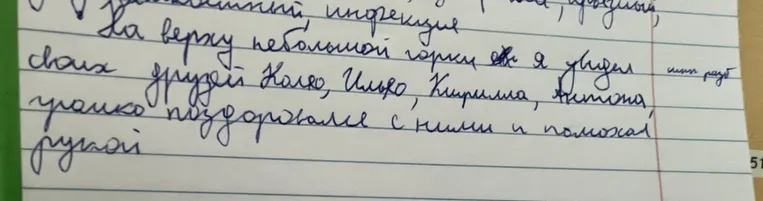 инфекция
На верху небольшой горки я увидел
своих друзей Колю, Илью, Кирилла, Антона,
громко поздоровался с ними и помохал
рукой
51